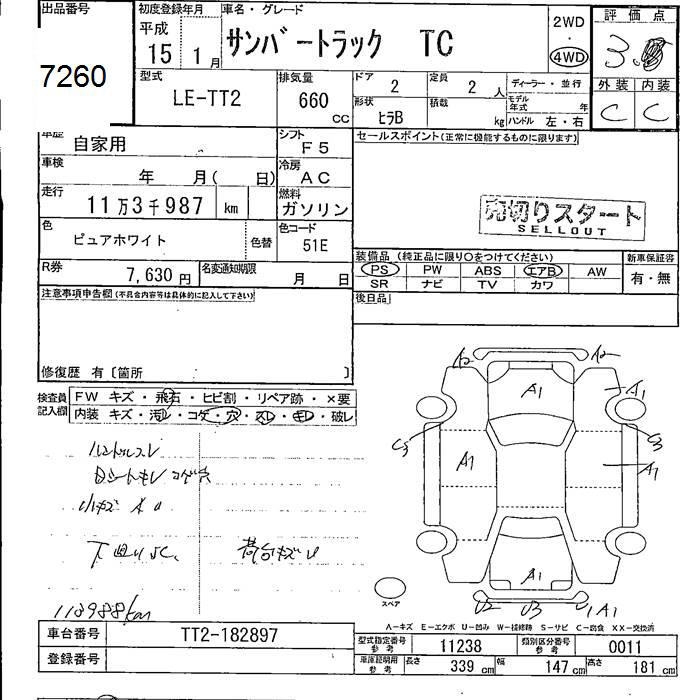 出品番号
7260
初度登録年月
平成
15 1月
車名・グレード
サンバートラック TC
2WD
・
4WD
評価点
3.
外装 内装
C C
型式
LE-TT2
排気量
660
CC
ドア 2
定員 2人
ディーラー・並行
形状 ヒラB
積載 kg
モデル年式 年
ハンドル 左・右
車歴 自家用
シフト F5
セールスポイント(正常に機能するものに限ります)
車検 年 月(日)
冷房 AC
走行 11万3千987 km
燃料 ガソリン
売切りスタート
SELLOUT
色 ピュアホワイト
色替
色コード 51E
装備品(純正品に限り○をつけてください)
新車保証書
PS PW ABS エアB AW
SR ナビ TV カワ
有・無
R券 7,630円
名変通知期限 月 日
後日品
注意事項申告欄(不具合内容等は具体的に記入して下さい)
修復歴 有〔箇所 〕
検査員記入欄
FW キズ・飛石・ヒビ割・リペア跡・×要
内装 キズ・汚レ・コゲ・穴・スレ・キレ・破レ
ハンドルスレ
Dシートキレ コゲ穴
小キズ A U
下廻りSC、 荷台キズU
113988km
A2 A2
A1 A1
A1 A1
A1
U2 U3 U1A1
スペア
A-キズ E-エクボ U-凹み W-補修跡 S-サビ C-腐食 XX-交換済
車台番号 TT2-182897
登録番号
型式指定番号参考 11238
類別区分番号参考 0011
車庫証明用参考 長さ 339cm 幅 147cm 高さ 181cm